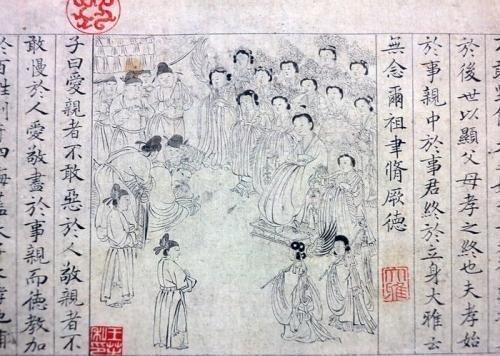 於後世以顯父母孝之終也夫孝始
於事親中於事君終於立身大雅云
無念爾祖聿脩厥德
子曰愛親者不敢惡於人敬親者不
敢慢於人愛敬盡於事親而德教加
於百姓刑于四海蓋天子之孝也甫